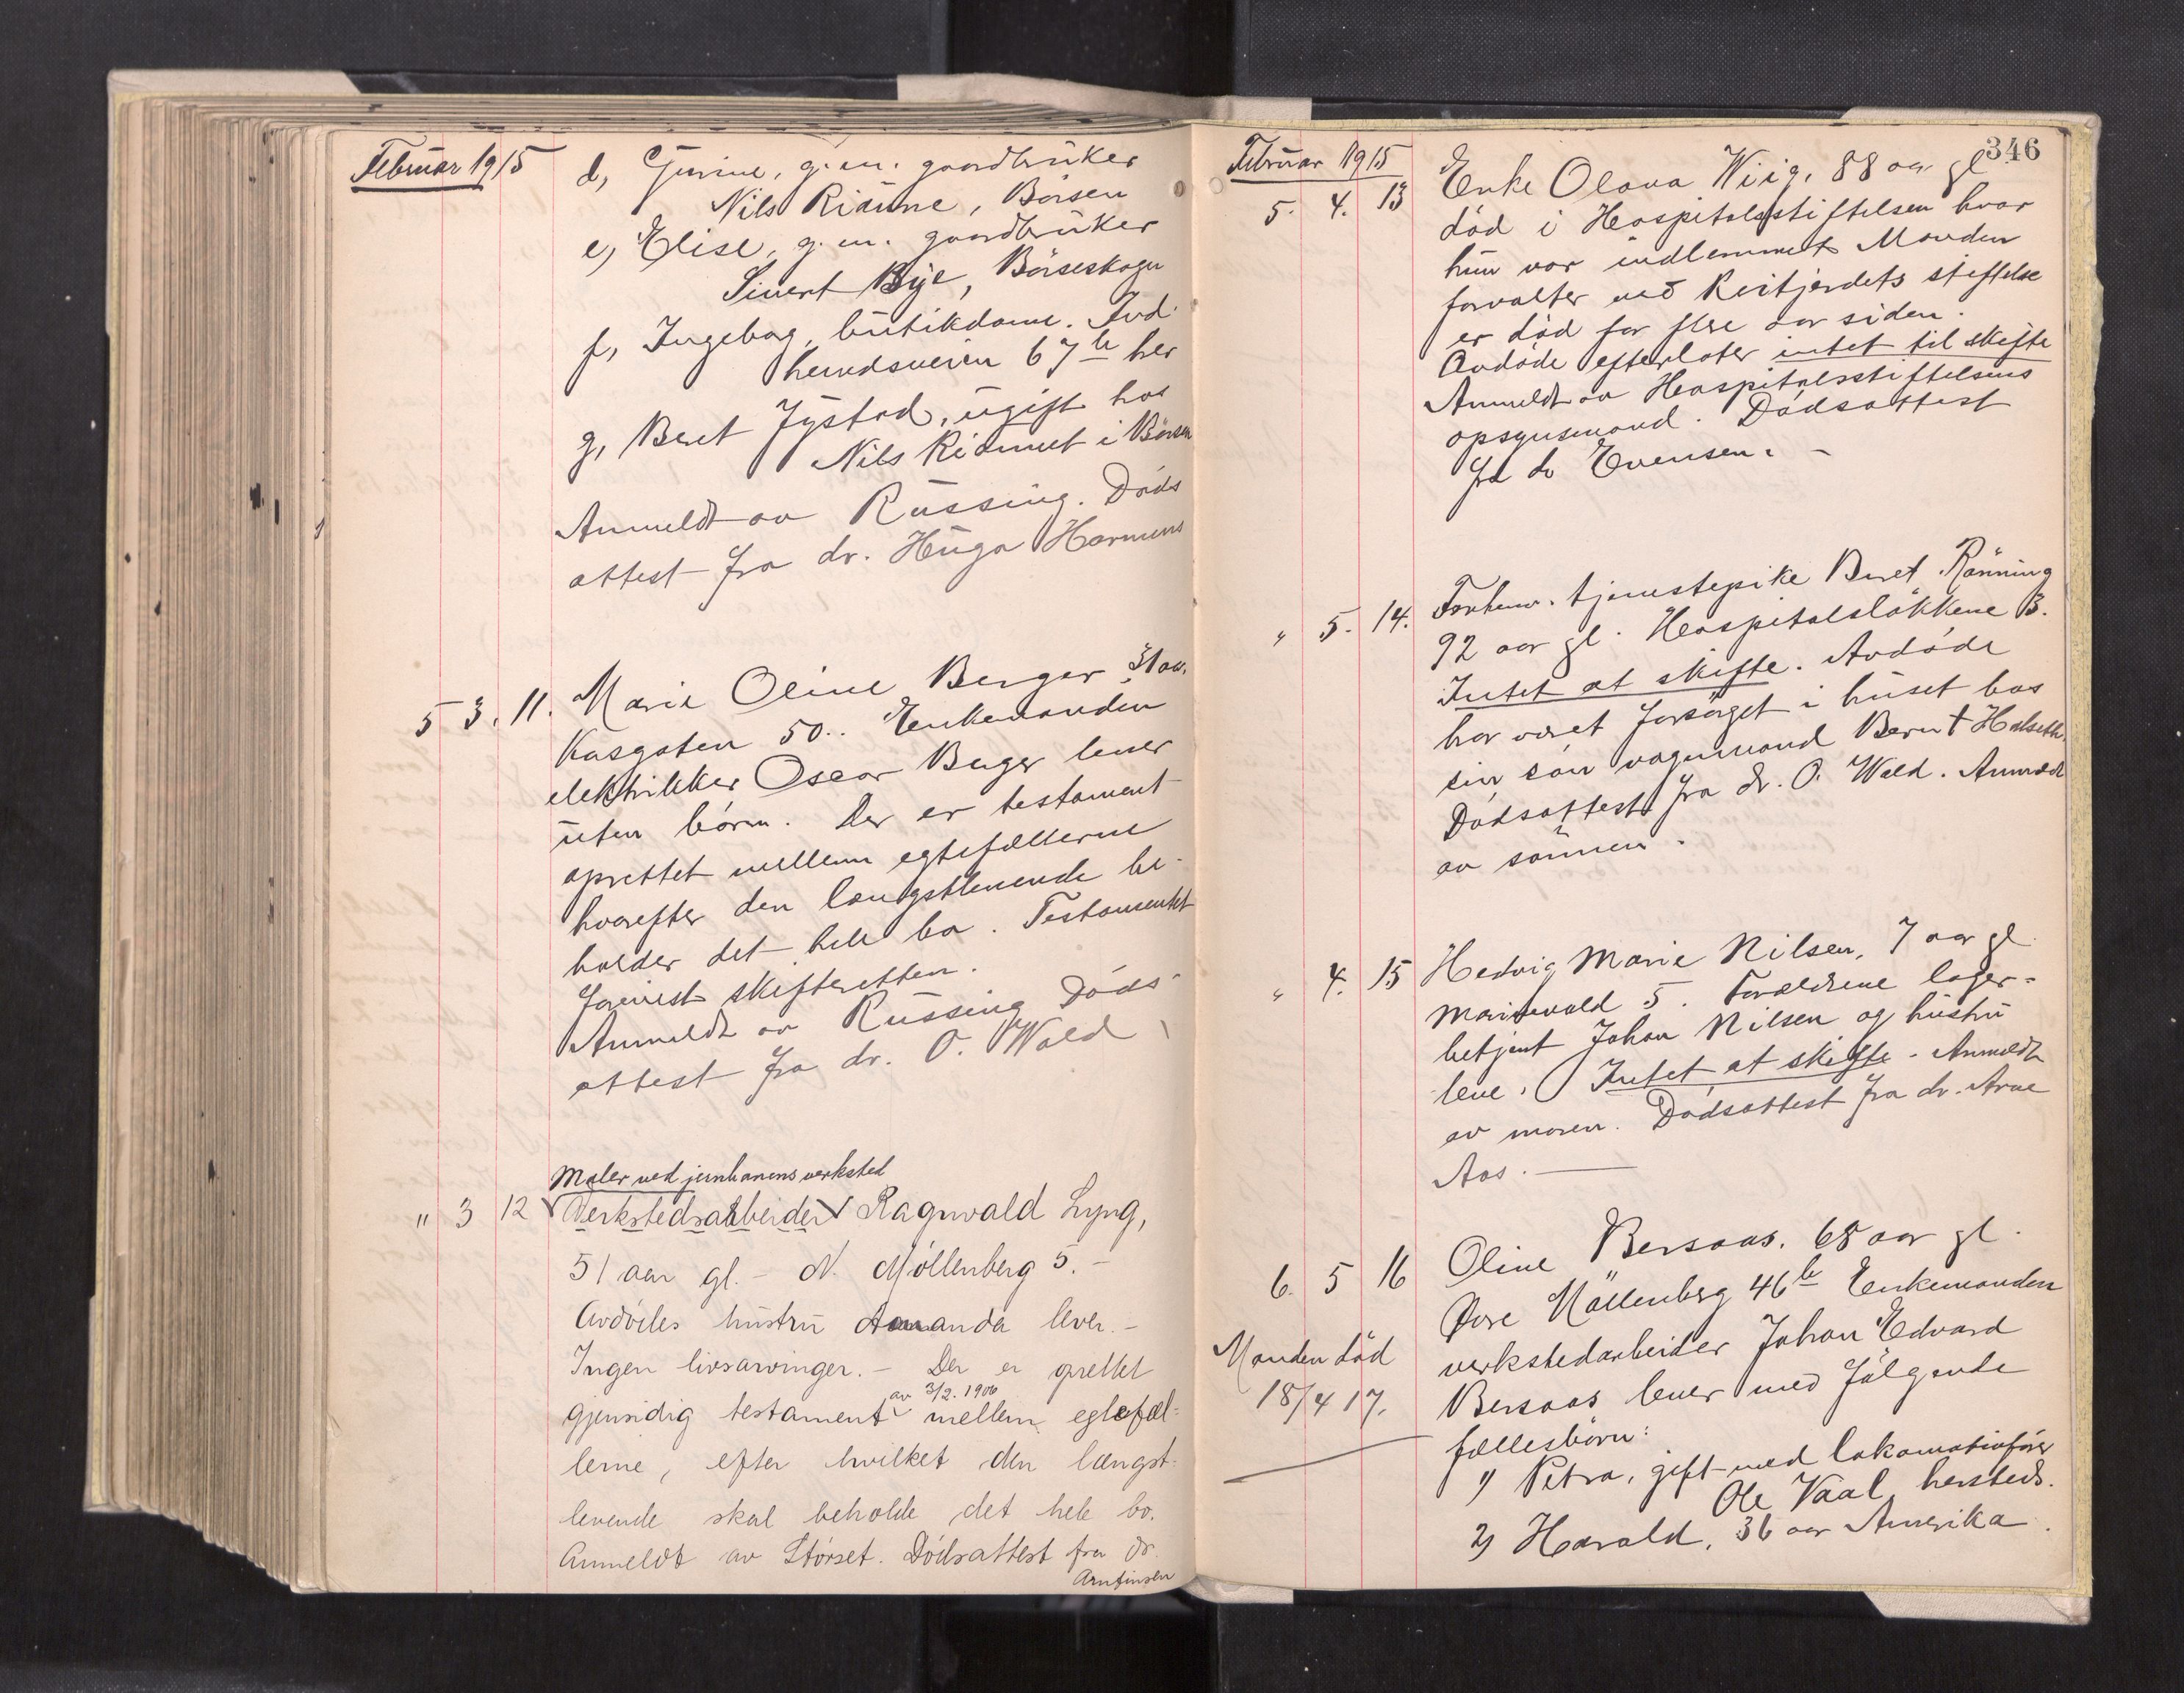 Februar 1915
d, Gurine, g. m. gaardbruker
Nils Rianne, Börsen
e, Elise, g. m. gaardbruker
Sivert Bye, Börseskogn
f, Ingeborg, butikdame. Ind-
herredsveien 67 b her
g, Beret Jystad, ugift hos
Nils Riannet i Börsen
Anmeldt av Russing. Döds
attest fra dr. Hugo Harmens
5 3. 11. Marie Oline Berger 31 aar.
50. Enkemanden
elektrikker Oscar Berger lever
uten börn. Der er testament
oprettet mellem egtefællerne
hvorefter den længstlevende be-
holder det hele bo. Testamentet
forevist skifteretten.
Anmeldt av Russing Döds-
attest fra dr. O. Wald
Maler ved jernbanens verksted
" 3 12 Verkstedsarbeider Ragnvald Lyng,
51 aar gl. - N. Möllenberg 5. -
Avdödes hustru Amanda lever. -
Ingen livsarvinger. - Der er oprettet
av 3/2. 1906
gjensidig testament mellem egtefæl-
lerne, efter hvilket den længst-
levende skal beholde det hele bo.
Anmeldt av Störset. Dödsattest fra dr.
Arnfinsen
346
Februar 1915
5. 4. 13 Enke Olava Wiig, 88 aar gl
död i Hospitalsstiftelsen hvor
hun var indlemmet Manden
forvalter ved Reitgjerdets stiftelse
er död for flere aar siden.
Avdöde efterlater intet til skifte
Anmeldt av Hospitalsstiftelsens
opsynsmand. Dödsattest
fra dr Evensen. -
" 5. 14. Forhenv. tjenestepike Beret Rönning
92 aar gl. Hospitalslökkene 3.
Intet at skifte. Avdöde
har været forsörget i huset hos
sin sön vognmand Bernt Halseth.
Dödsattest fra dr. O. Wald. Anmeldt
av sönnen.
" 4. 15 Hedvig Marie Nilsen, 7 aar gl.
Marienvold 5. Forældrene lager-
betjent Johan Nilsen og hustru
leve. Intet at skifte. Anmeldt
av moren. Dödsattest fra dr. Arne
Aas.
6. 5 16 Oline Bersaas. 68 aar gl.
Övre Möllenberg 46 b Enkemanden
verkstedarbeider Johan Edvard
Manden död
18/4 17.
Bersaas lever med fölgende
fællesbörn:
1) Petra, gift med lokomotivförer
Ole Vaal, hersteds.
2) Harald, 36 aar Amerika.